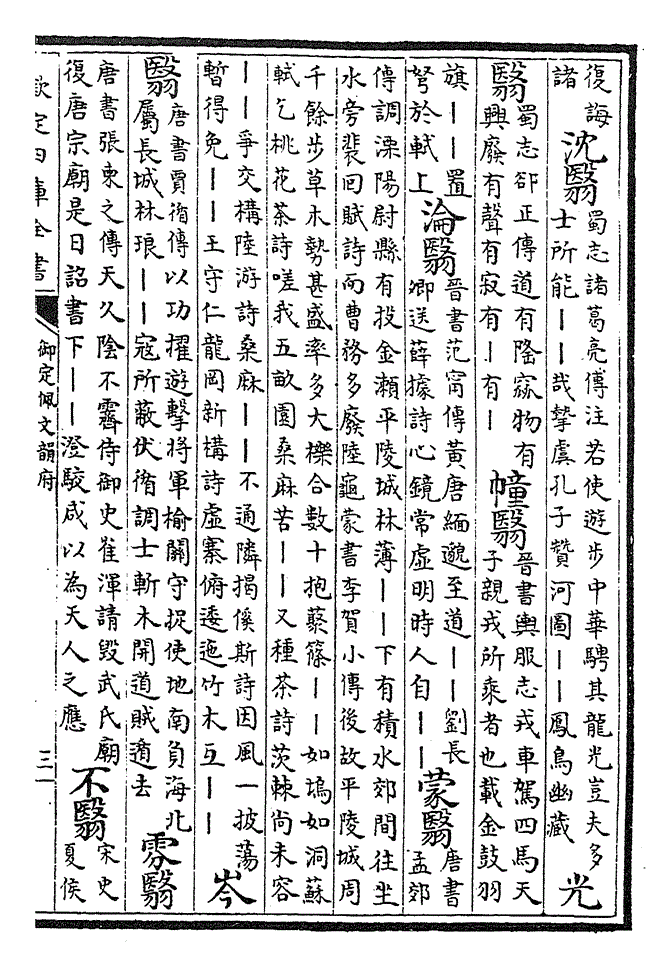 復誨
諸
沈翳
蜀志諸葛亮傳注若使遊步中華騁其龍光豈夫多
士所能——哉摯虞孔子贊河圖——鳳鳥幽藏
光
翳
蜀志郤正傳道有隆窳物有
興廢有聲有寂有—有—
幢翳
晉書輿服志戎車駕四馬天
子親戎所乘者也載金鼓羽
旗——置
弩於軾上
淪翳
晉書范甯傳黃唐緬邈至道——劉長
卿送薛據詩心鏡常虛明時人自——
蒙翳
唐書
孟郊
傳調溧陽尉縣有投金瀨平陵城林薄——下有積水郊間往坐
水旁裴回賦詩而曹務多廢陸龜蒙書李賀小傳後故平陵城周
千餘步草木勢甚盛率多大櫟合數十抱藂篠——如塢如洞蘇
軾乞桃花茶詩嗟我五畝園桑麻苦——又種茶詩茨棘尚未容
——爭交構陸游詩桑麻——不通隣揭傒斯詩因風一披蕩
暫得免——王守仁龍岡新構詩虛寨俯逶迤竹木互——
岑
翳
唐書賈循傳以功擢遊擊將軍榆關守捉使地南負海北
屬長城林琅——寇所蔽伏循調士斬木開道賊遁去
雰翳
唐書張柬之傳天久陰不霽侍御史崔渾請毀武氏廟
復唐宗廟是日詔書下——澄駮咸以為天人之應
不翳
宋史
夏侯
欽定四庫全書
御定佩文韻府
三一